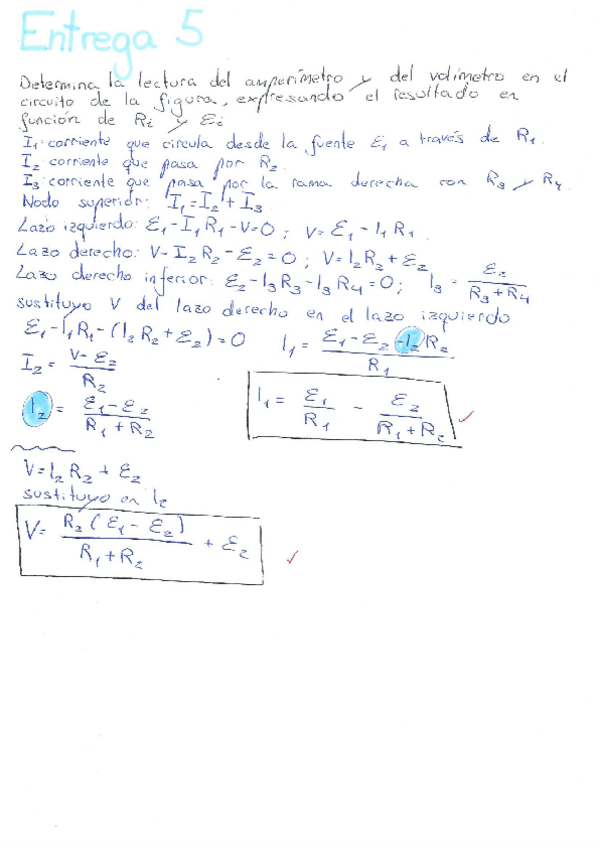 Entrega 5
Determina la lectura del amperímetro y del voltímetro en el
circuito de la figura, expresando el resultado en
función de Ri y Ei
I₁: corriente que circula desde la fuente ε₁ a través de R₁.
I₂: corriente que pasa por R₂
I₃: corriente que pasa por la rama derecha con R₃ y R₄.
Nodo superior: I₁=I₂+I₃
Lazo izquierdo: ε₁-I₁R₁-V=0; V=ε₁-I₁R₁.
Lazo derecho: V-I₂R₂-ε₂=0; V=I₂R₂+ε₂
Lazo derecho inferior: ε₂-I₃R₃-I₃R₄=0; I₃= ε₂/(R₃+R₄)
sustituyo V del lazo derecho en el lazo izquierdo
ε₁-I₁R₁-(I₂R₂+ε₂)=0 I₁= (ε₁-ε₂-I₂R₂)/R₁
I₂= (V-ε₂)/R₂
I₂= (ε₁-ε₂)/(R₁+R₂)
I₁= ε₁/R₁ - ε₂/(R₁+R₂)
V=I₂R₂+ε₂
sustituyo en I₂
V= R₂(ε₁-ε₂)/(R₁+R₂) + ε₂